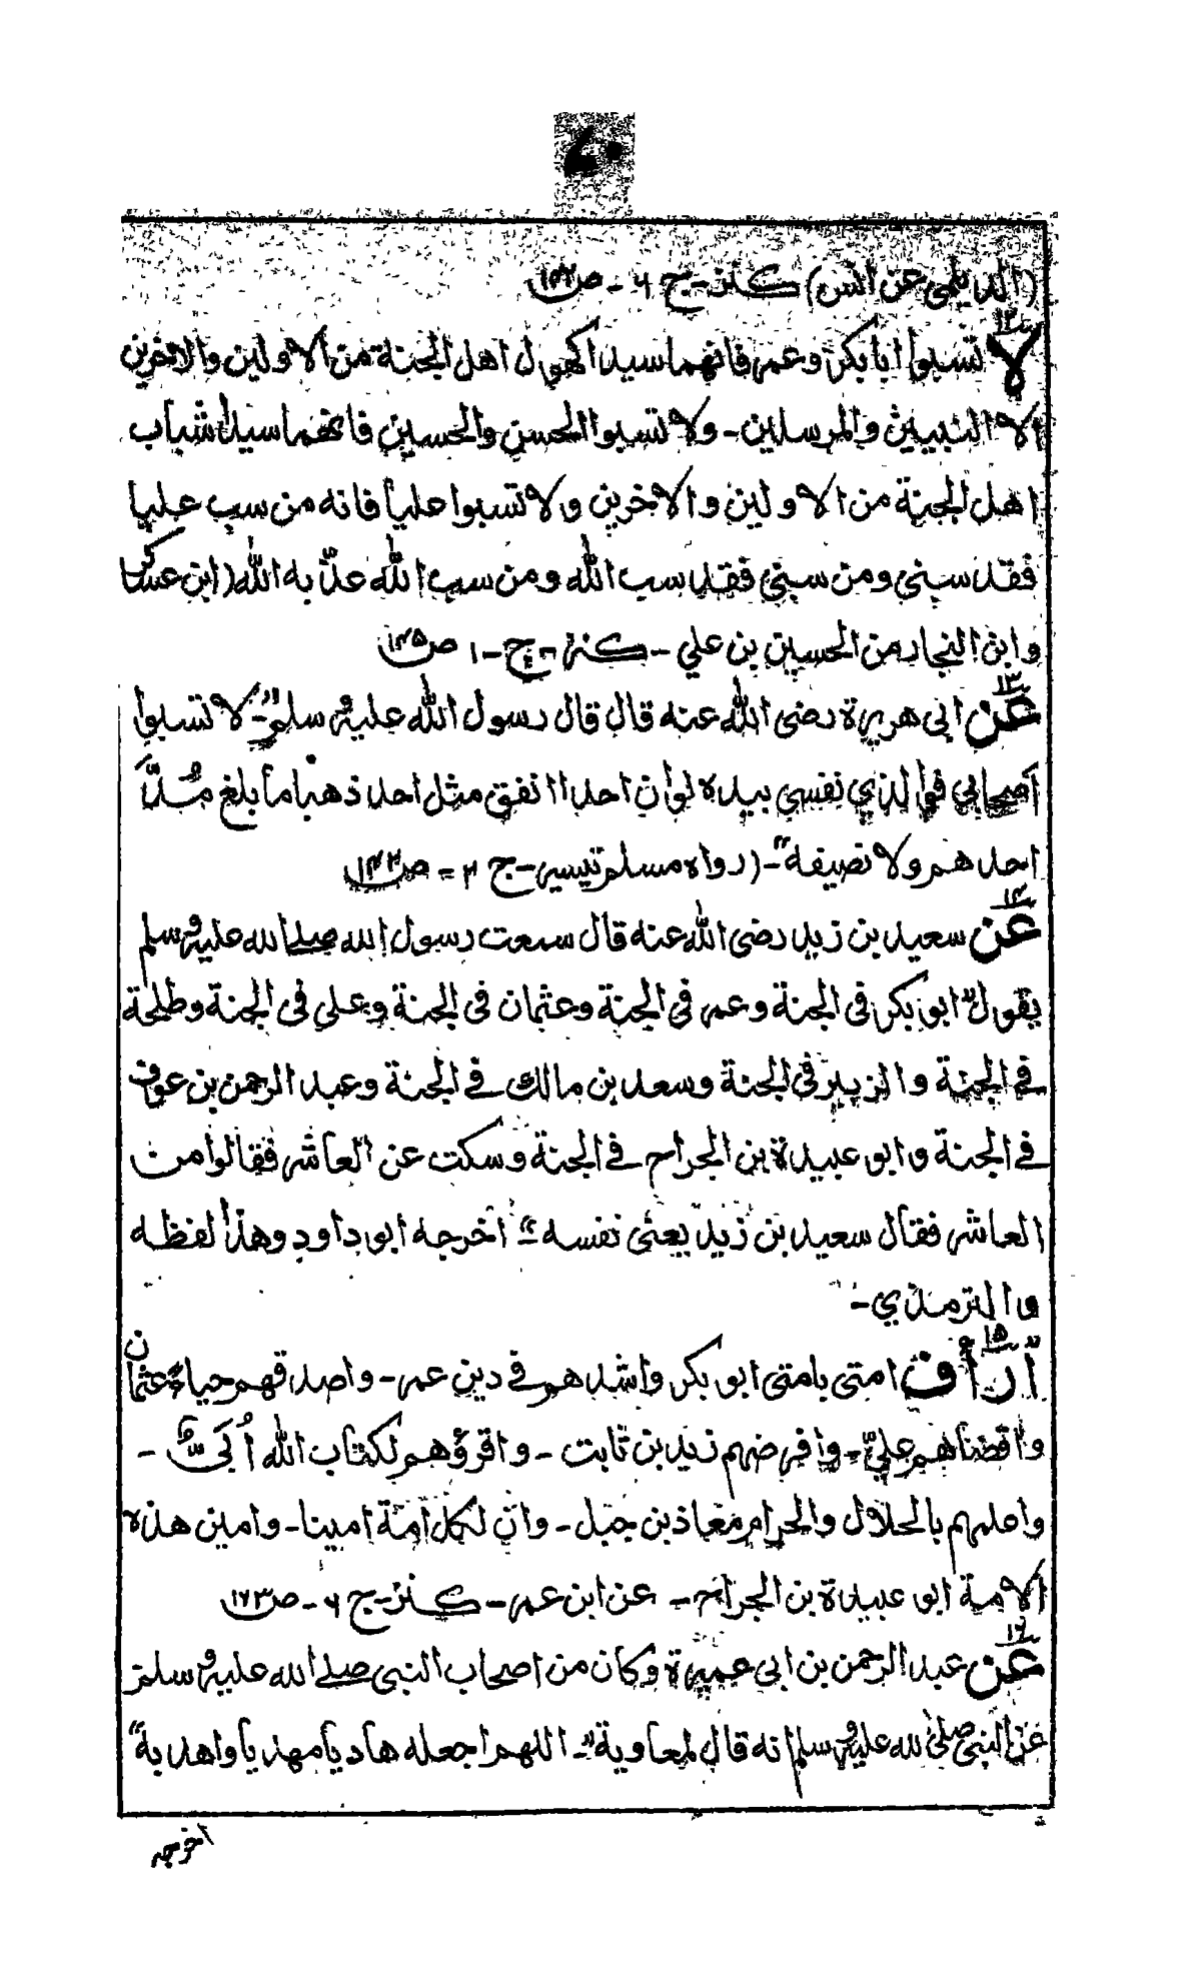 (الديلمي عن انس) كنز - ج ٦ - ص
١٢
لا تسبوا ابا بكر و عمر فانهما سيدا كهول اهل الجنة من الاولين والاخرين
الا النبيين والمرسلين - ولا تسبوا الحسن والحسين فانهما سيدا شباب
اهل الجنة من الاولين والاخرين ولا تسبوا عليا فانه من سب عليا
فقد سبني ومن سبني فقد سب الله ومن سب الله عذّبه الله (ابن عساكر
وابن النجار من الحسين بن علي - كنز - ج - ١ ص
١٣
عن ابي هريرة رضى الله عنه قال قال رسول الله عليه وسلم "لا تسبوا
اصحابي فوالذي نفسي بيده لو أن احدا انفق مثل احد ذهبا ما بلغ مُدَّ
احدهم ولا نصيفه" - (رواه مسلم تيسير - ج ٣ = ص ١٤٢
١٤
عن سعيد بن زيد رضى الله عنه قال سمعت رسول الله صلى الله عليه وسلم
يقول "ابو بكر في الجنة وعمر في الجنة وعثمان في الجنة وعلي في الجنة وطلحة
في الجنة والزبير في الجنة وسعد بن مالك في الجنة وعبد الرحمن بن عوف
في الجنة وابو عبيدة بن الجراح في الجنة وسكت عن العاشر فقالوا من
العاشر فقال سعيد بن زيد يعنى نفسه" اخرجه ابو داود وهذا لفظه
والترمذي -
١٥
أرأف امتى بامتى ابو بكر واشدهم في دين عمر - واصدقهم حياء عثمان
واقضاهم علي - وافرضهم زيد بن ثابت - واقرؤهم لكتاب الله أُبَيّ -
واعلمهم بالحلال والحرام معاذ بن جبل - وان لكل امة امينا - وامين هذه
الامة ابو عبيدة بن الجراح - عن ابن عمر - كنز - ج ٦ - ص ١٧٣
١٦
عن عبد الرحمن بن ابى عميرة وكان من اصحاب النبى صلى الله عليه وسلم
عن النبى صلى الله عليه وسلم انه قال لمعاوية "- اللهم اجعله هاديا مهديا واهد به"
اخرجه